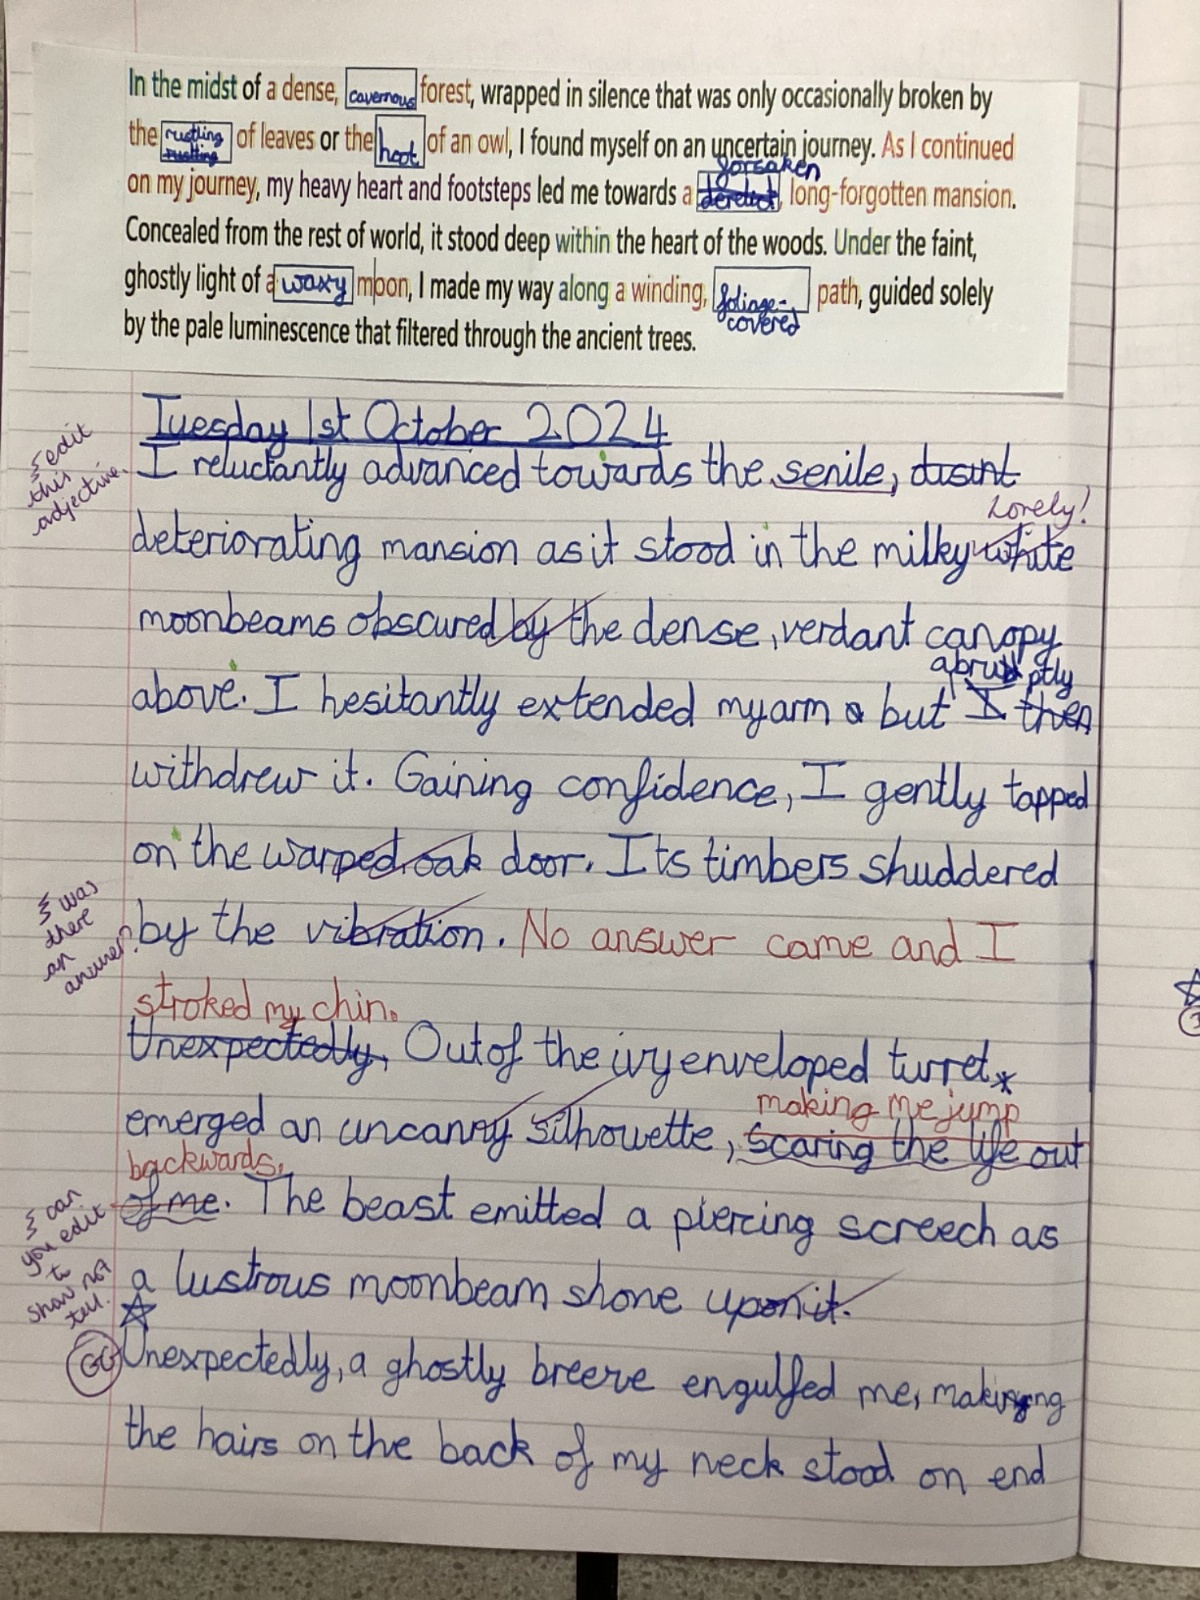 In the midst of a dense, cavernous forest, wrapped in silence that was only occasionally broken by
the rustling of leaves or the hoot of an owl, I found myself on an uncertain journey. As I continued
forsaken
on my journey, my heavy heart and footsteps led me towards a derelict, long-forgotten mansion.
Concealed from the rest of world, it stood deep within the heart of the woods. Under the faint,
ghostly light of a waxy moon, I made my way along a winding, foliage-covered path, guided solely
by the pale luminescence that filtered through the ancient trees.
Tuesday 1st October 2024
edit
this
adjective.
I reluctantly advanced towards the senile,
Lovely!
deteriorating mansion as it stood in the milky white
moonbeams obscured by the dense, verdant canopy
abruptly
above. I hesitantly extended my arm but I then
withdrew it. Gaining confidence, I gently tapped
on the warped oak door. Its timbers shuddered
was
there
an
answer?
by the vibration. No answer came and I
stroked my chin.
Unexpectedly, Out of the ivy enveloped turret*
making me jump
emerged an uncanny silhouette, scaring the life out
backwards.
can
you edit
to
show not
tell.
of me. The beast emitted a piercing screech as
a lustrous moonbeam shone upon it.
GG
Unexpectedly, a ghostly breeze engulfed me, making
the hairs on the back of my neck stood on end